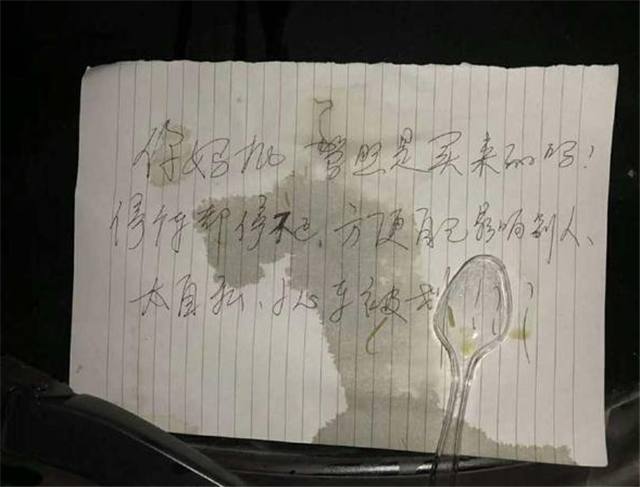 你妈批 驾照是买来的吗！
停车都停 、方便自己影响别人、
太自私、小心车被划！！！！